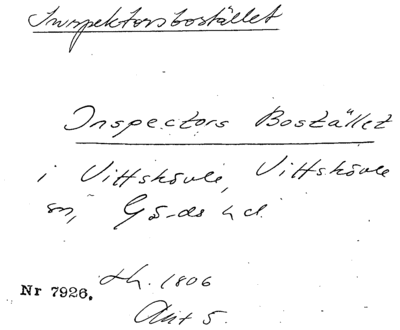 Inspektorsbostället
Inspectors Bostället
i Vittskövle, Vittskövle
sn, Gärds hd.
th. 1806
Nr 7926.
Akt 5.